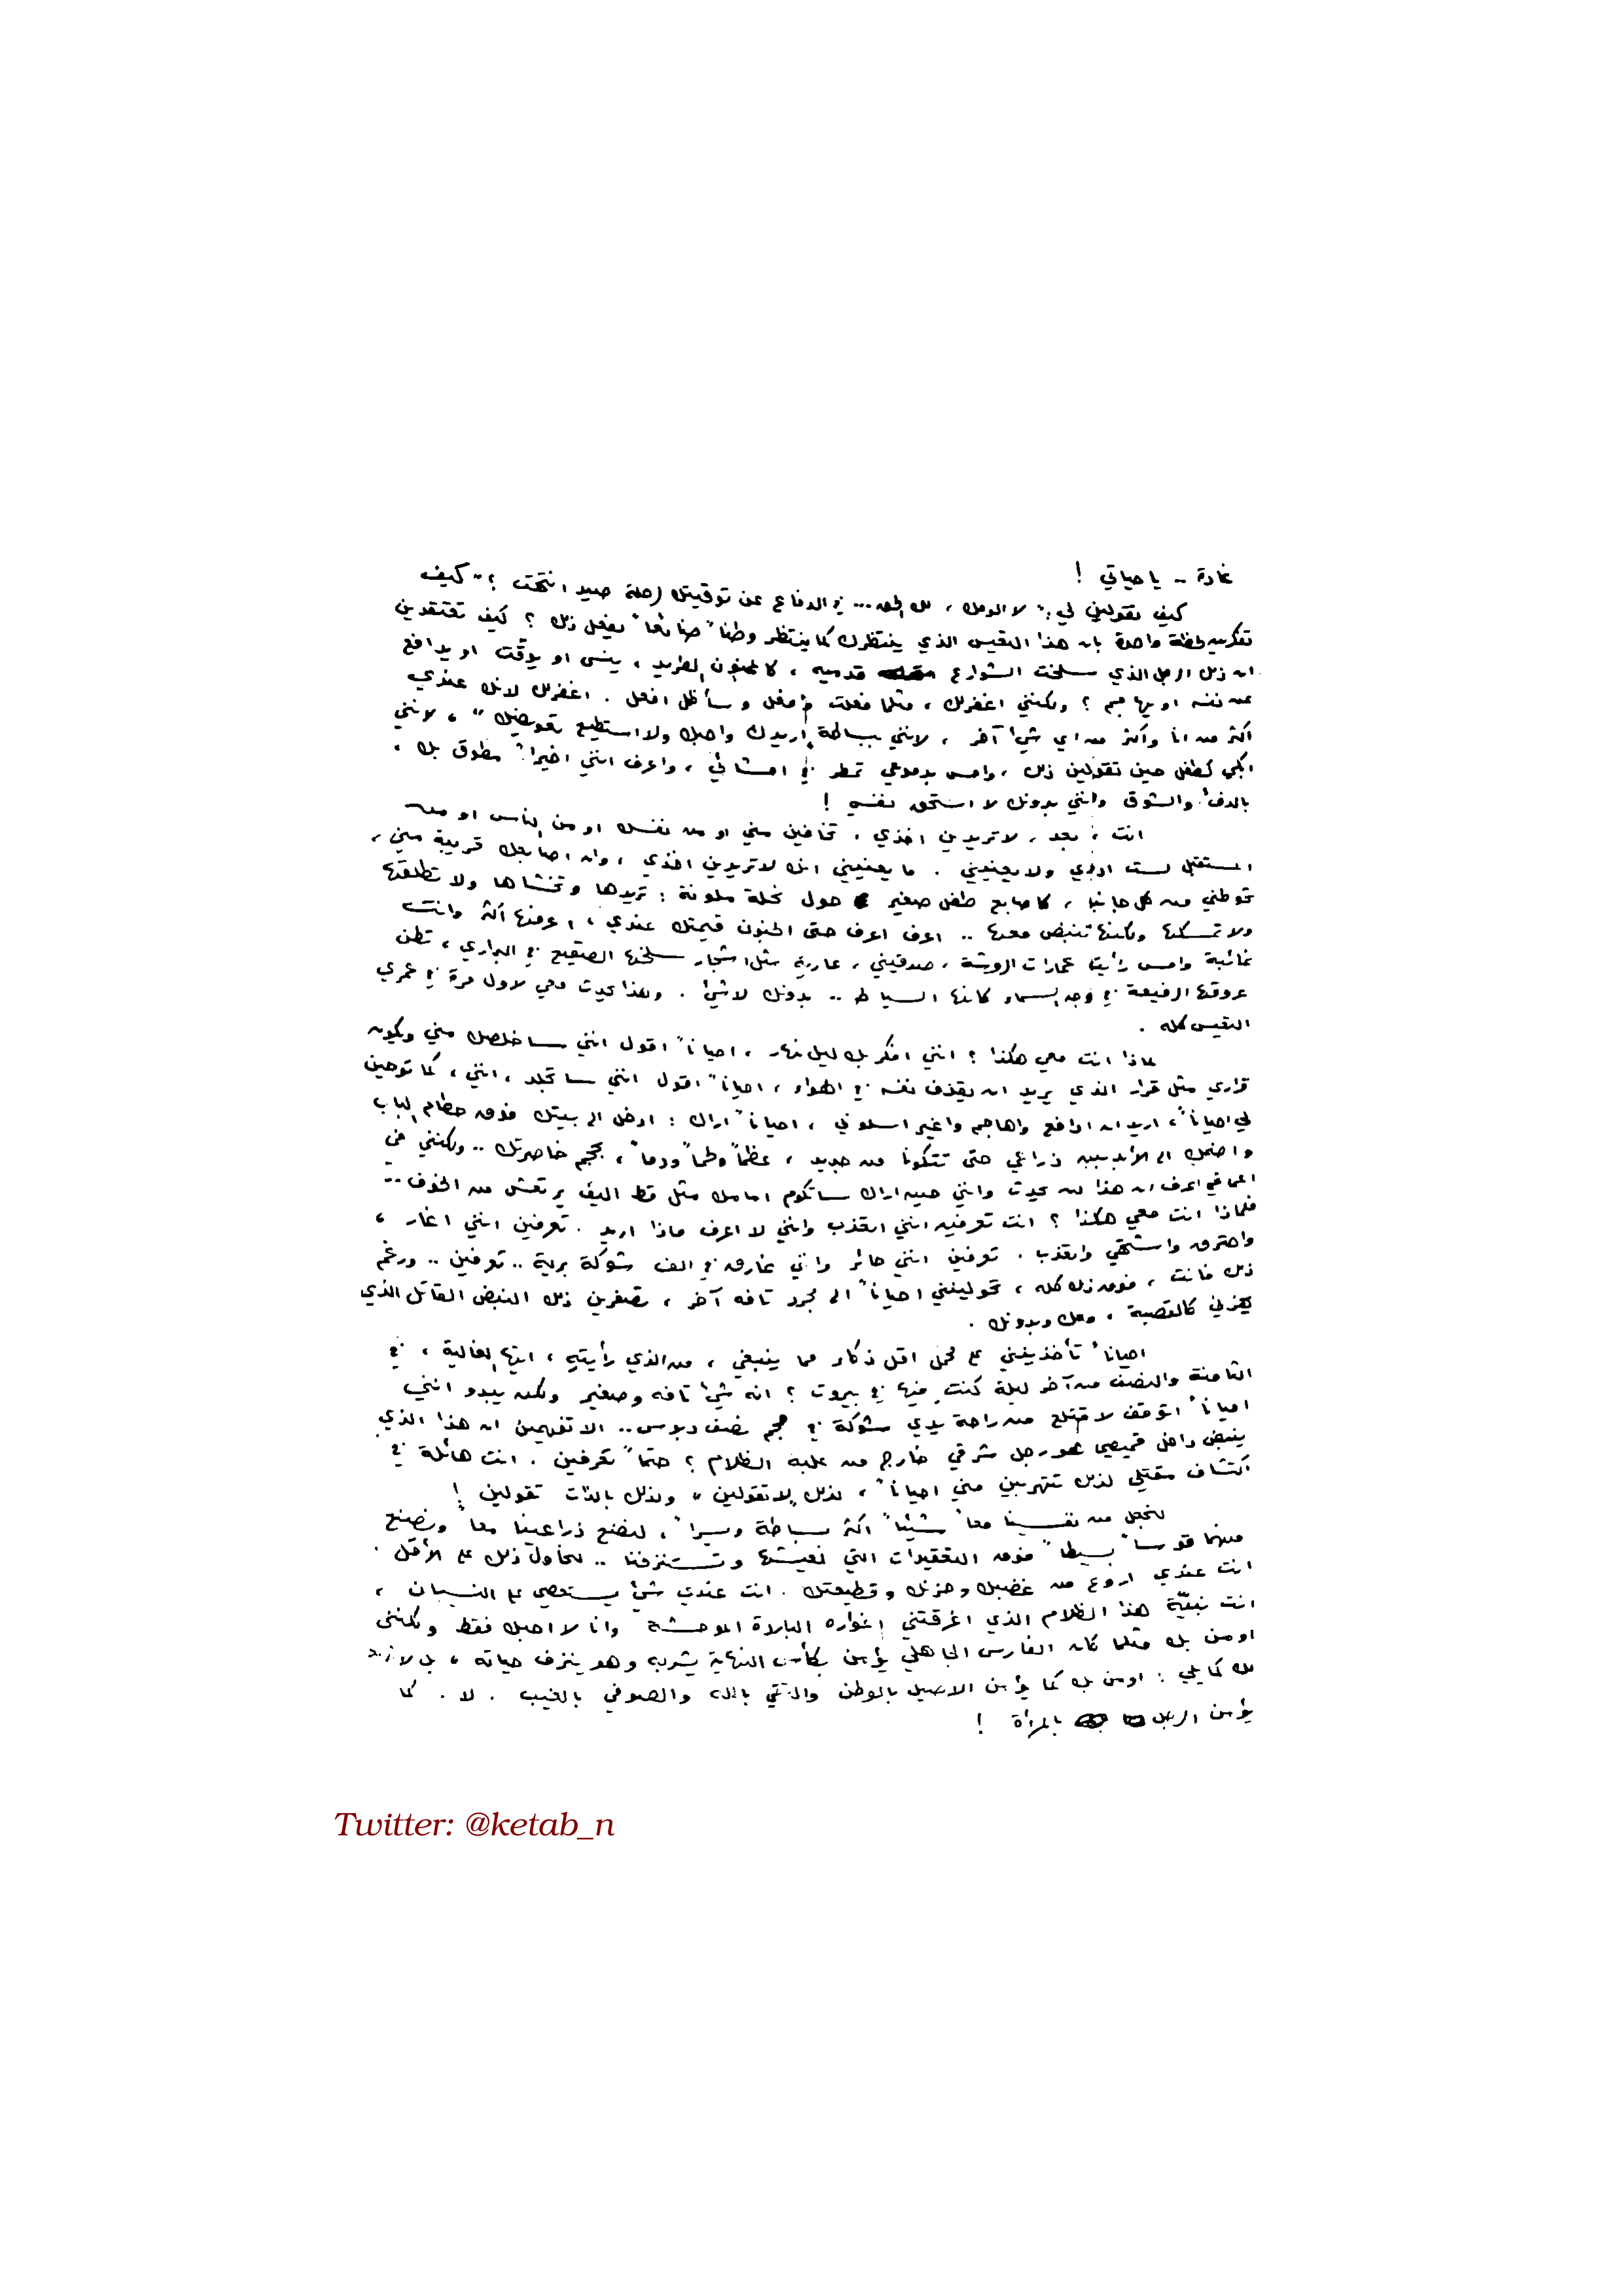 غادة .. يا حياتي !
كيف تقولين لي : " لا الومك ، لك الحق ... في الدفاع عن توقيتك لرحلة صيد انتهت ؟ " كيف
تفكرين لحظة واحدة بان هذا التعيس الذي ينتظرك كما ينتظر وطنا" ضائعا" يفعل ذلك ؟ كيف تعتقدين
ان ذلك الرجل الذي سلخت الشوارع قدميه ، كالمجنون الطريد ، ينسى او يوقت او يدافع
عن نفسه او يهاجم ؟ ولكنني اغفر لك ، مثلما فعلت وافعل وسأظل افعل . اغفر لك لانك عندي
أكثر من انا وأكثر من اي شيء آخر ، لانني ببساطة اريدك واحبك ولا استطيع تعويضك " ، لانني
ابكي كطفل حين تقولين ذلك ، واحس بدموعي تمطر في احشائي ، واعرف انني اخيرا" مطوق بك ،
بالدفء والشوق وانني بدونك لا استحق نفسي !
انت ، بعد ، لا تريدين اخذي ، تخافين مني او من نفسك او من الناس او من
المستقبل لست ادري ولا يعنيني . ما يعنيني انك لا تريدين اخذي ، وان اصابعك قريبة مني ،
تحوطني من كل جانب ، كأصابع طفل صغير حول نحلة ملونة : تريدها وتخشاها ولا تطلقها
ولا تمسكها ولكنها تنبض معها .. اعرف اعرف حتى الجنون قيمتك عندي ، اعرفها أكثر وانت
غائبة وامس رأيت عمارات الروشة ، صدقيني ، عارية مثل اشجار سلخها الصقيع في البراري ، تطن
عروقها الرفيعة في وجه السماء كأنها السياط .. بدونك لا شيء . وهذا يحدث معي لاول مرة في عمري
التعيس كله .
لماذا انت معي هكذا ؟ انني افكر بك ليل نهار ، احيانا" اقول انني سأخلصك مني ويكون
قراري مثل قرار الذي يريد ان يقذف نفسه في الهواء ، احيانا" اقول انني سأتجلد ، انني ، كما توحين
لي احيانا" ، اريد ان ادافع واهاجم واغير اسلوبي ، احيانا" اراك : ادخل الى بيتك فوق حطام الباب
واضمك الى الأبد بين ذراعي حتى تتكونا من جديد ، عظما" ولحما" ودما" ، بحجم خاصرتك .. ولكنني في
اعماقي اعرف ان هذا لن يحدث وانني حين اراك سأتكوم امامك مثل قط اليف يرتعش من الخوف ..
فلماذا انت معي هكذا ؟ انت تعرفين انني اتعذب وانني لا اعرف ماذا اريد . تعرفين انني اغار ،
واحترق واشتهي واتعذب . تعرفين انني حائر وانني غارق في الف شوكة برية .. تعرفين .. ورغم
ذلك فانت ، فوق ذلك كله ، تحولينني احيانا" الى مجرد تافه آخر ، تصغرين ذلك النبض القاتل الذي
يهزني كالقصبة ، معك وبدونك .
احيانا" تأخذينني على محمل اقل ذكاء مما ينبغي ، من الذي رأيته ، ايتها الغالية ، في
الثامنة والنصف من آخر ليلة كنت فيها في بيروت ؟ انه شيء تافه وصغير ولكن يبدو انني
احيانا" اتوقف لاقتلع من راحة يدي شوكة في حجم نصف دبوس .. الا تفهمين ان هذا الذي
ينبض داخل قميصي هو رجل شرقي خارج من علبة الظلام ؟ حتما" تعرفين . انت هائلة في
اكتشاف مقتلي لذلك تتهربين مني احيانا" ، لذلك " لا تقولين " ولذلك بالذات تقولين !
لنجعل من نفسينا معا" شيئا" اكثر بساطة ويسرا" ، لنضع ذراعينا معا" ونصنع
منهما قوسا" بسيطا" فوق التعقيدات التي نعيشها وتستنزفنا .. لنحاول ذلك على الأقل .
انت عندي اروع من غضبك وحزنك وقطيعتك . انت عندي شيء يستعصي على النسيان ،
انت نبيّة هذا الظلام الذي اغرقتني اغواره الباردة الموحشة وانا لا احبك فقط ولكنني
اومن بك مثلما كان الفارس الجاهلي يؤمن بكأس النهاية يشربه وهو ينزف حياته ، بل لأزيد
لك كما يلي : اومن بك كما يؤمن الاصيل بالوطن والتقي بالله والصوفي بالغيب . لا . كما
يؤمن الرجل بالمرأة !
Twitter: @ketab_n